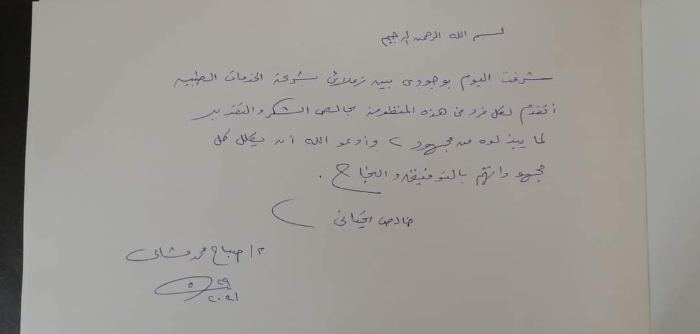 بسم الله الرحمن الرحيم
شرفت اليوم بوجودى بين زملائى بشركة الخدمات الطبية
أتقدم لكل فرد فى هذه المنظومة بخالص الشكر والتقدير
لما يبذلوه من مجهود وأدعو الله أن يكلل كل
مجهوداتهم بالتوفيق والنجاح .
خالص تحياتى
صباح محمد
٢٩
٥
٢٠٢١